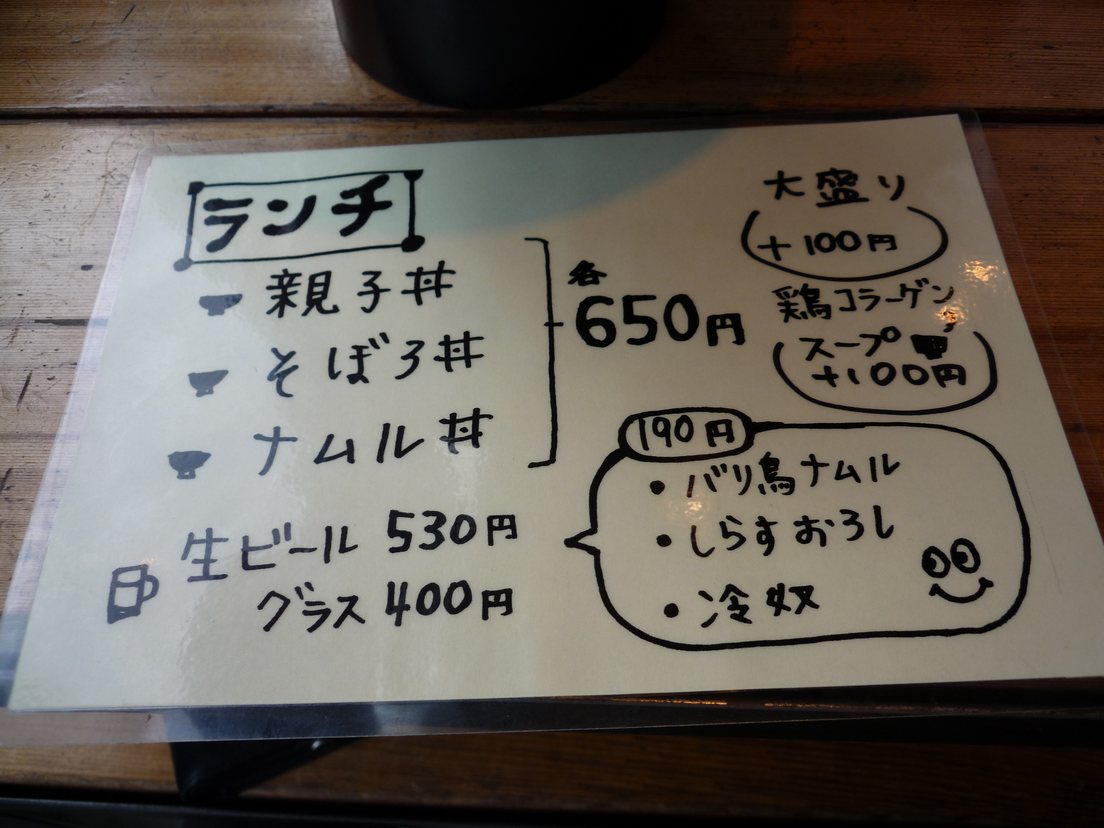 ランチ
親子丼
そぼろ丼
ナムル丼
各
650円
大盛り
+100円
鶏コラーゲン
スープ
+100円
生ビール 530円
グラス 400円
190円
・バリ鳥ナムル
・しらすおろし
・冷奴